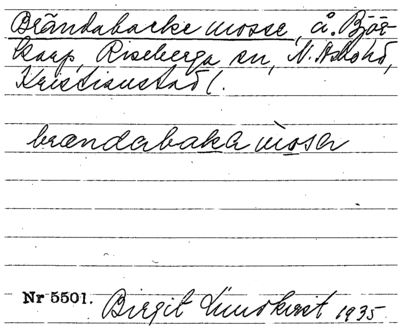 Brändabacke mosse, å. Björ-
karp, Riseberga sn, N. Åsbohd,
Kristianstad l.
brændabaka mosa
Nr 5501. Birgit Lundkvist 1935